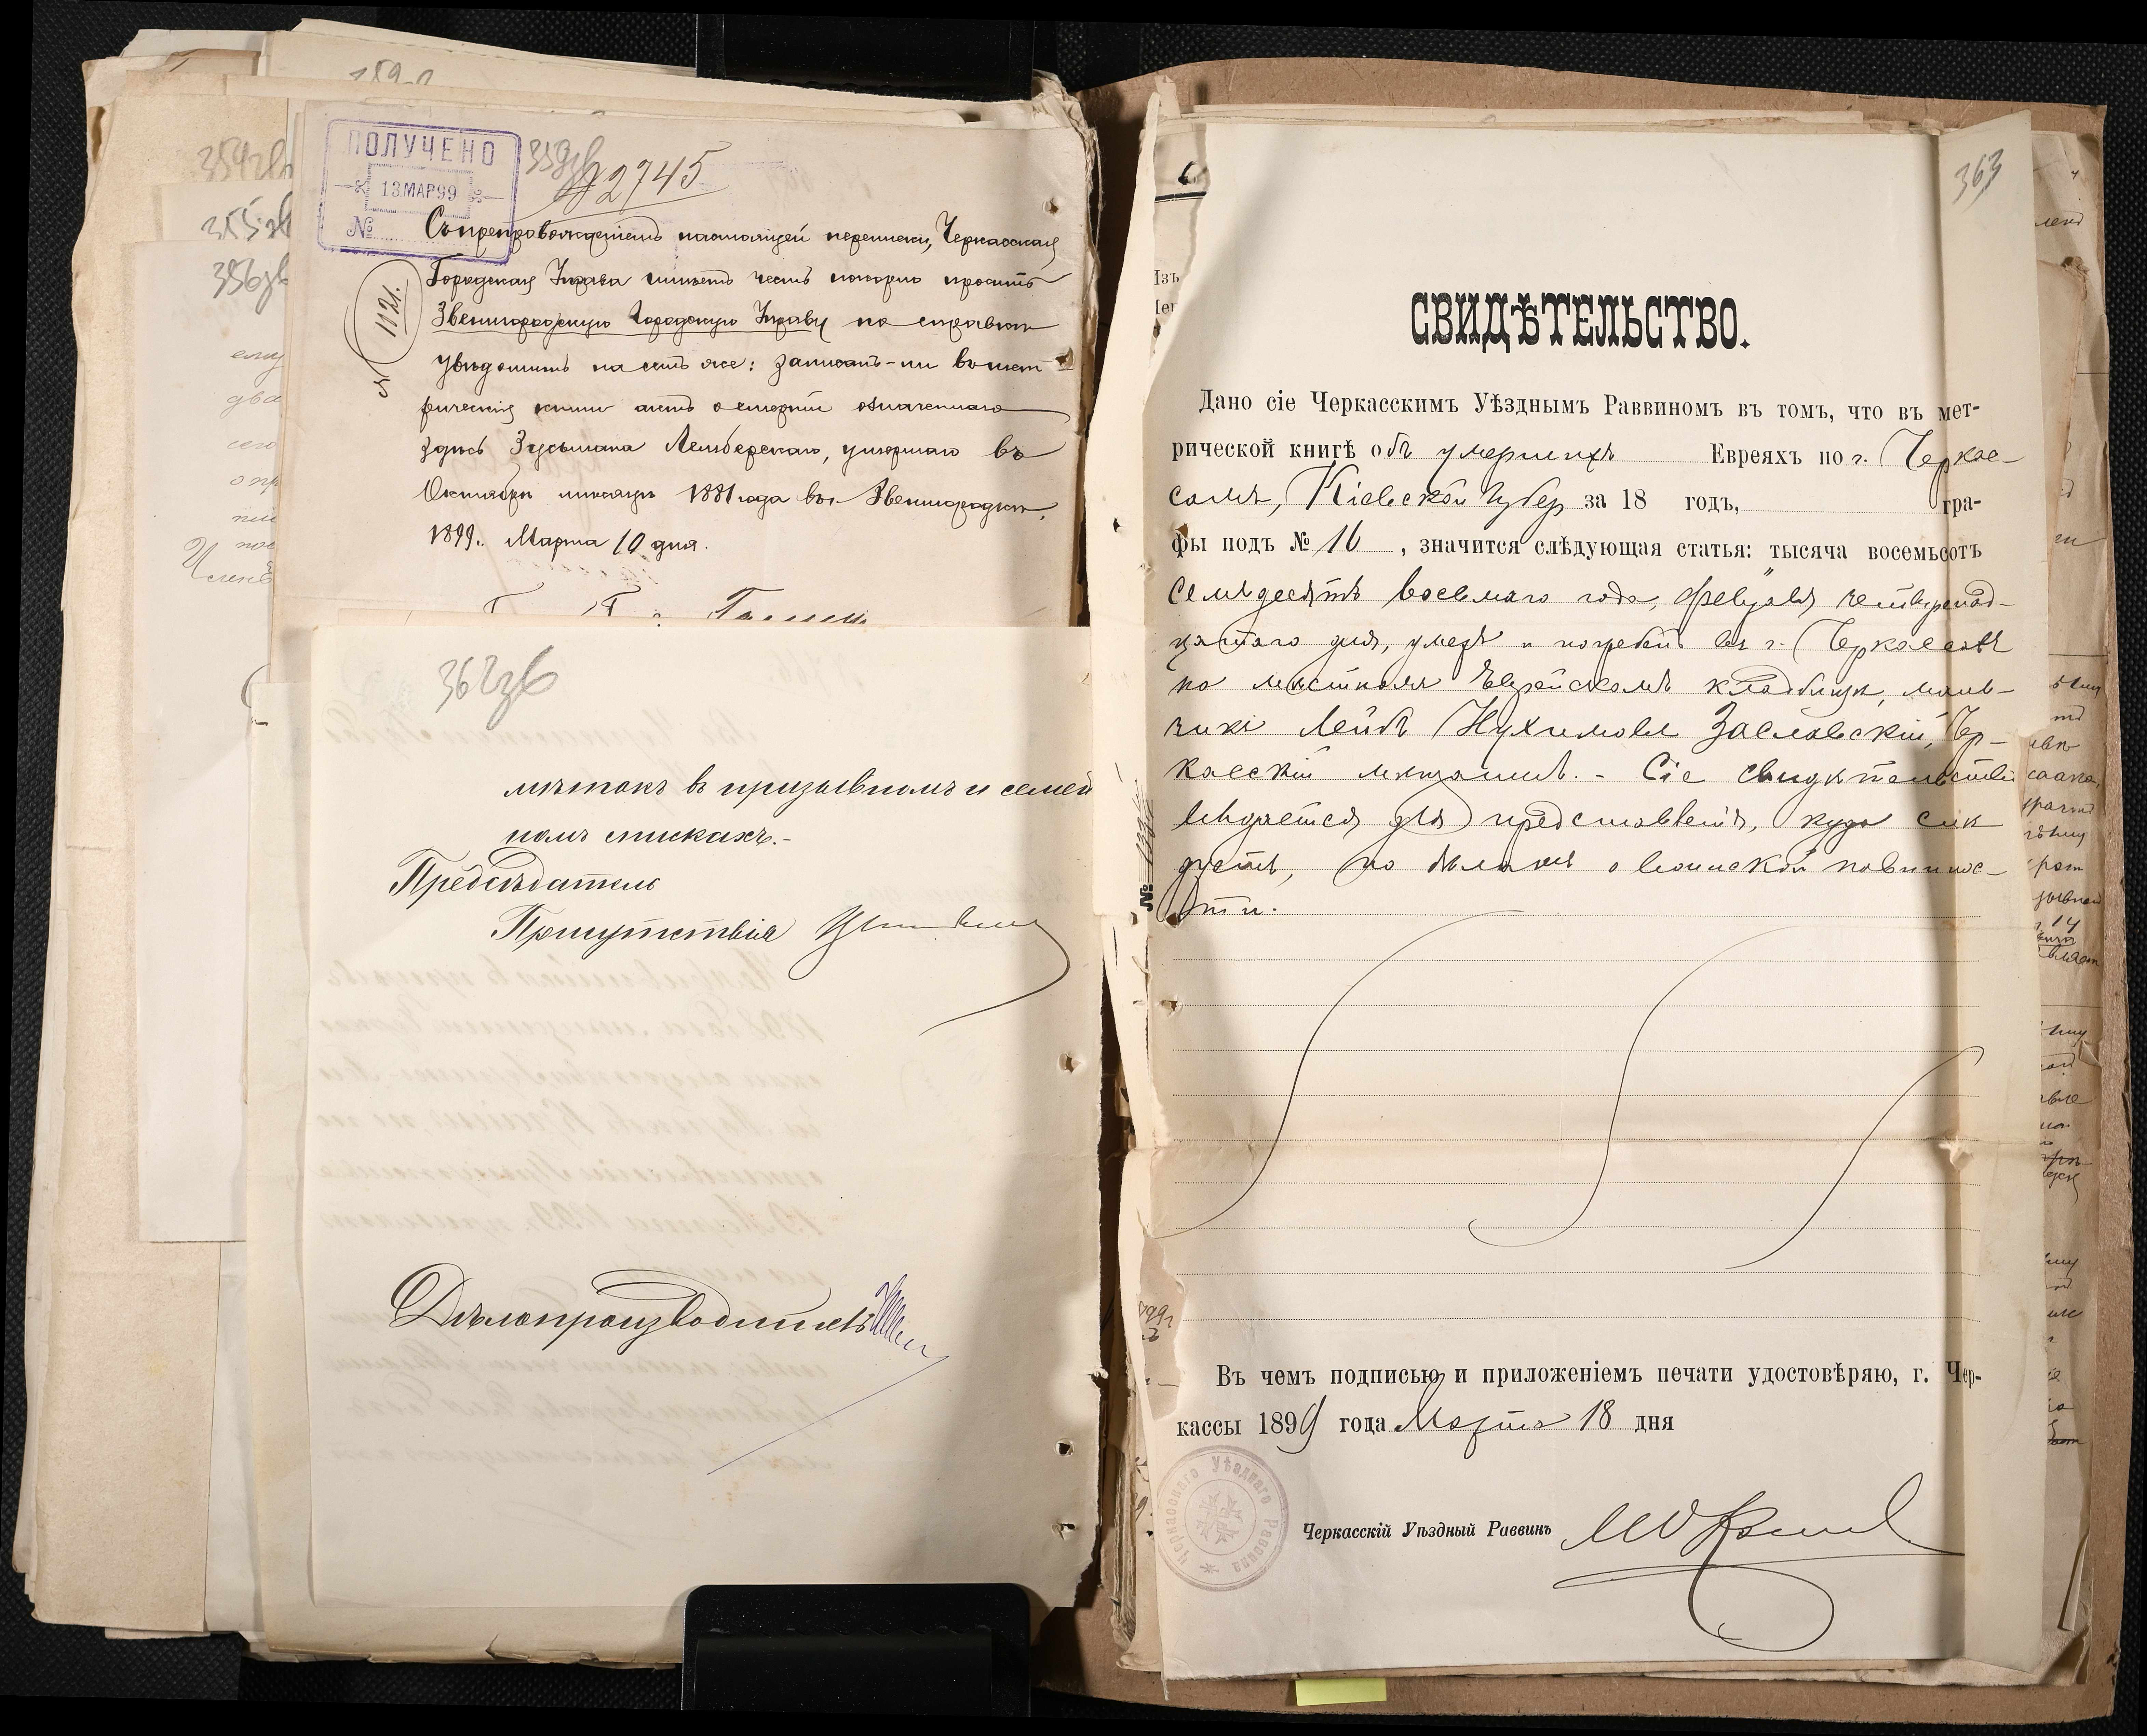 ПОЛУЧЕНО
13 МАР 99
№
359зв
№ 2745
№ 1121.
Съ препровожденіемъ настоящей переписки, Черкасская
Городская Управа имѣетъ честь покорно просить
Звенигородскую Городскую Управу по справкѣ
увѣдомить на семъ же: записанъ-ли въ мет
рическія книги актъ о смерти означеннаго
здѣсь Зусьмана Лемберскаго, умершаго въ
Октябрѣ мѣсяцѣ 1881 года въ г. Звенигородкѣ.
1899 г. Марта 10 дня.
354зв
355зв
356зв
362зв
мѣтокъ въ призывномъ и семей
номъ спискахъ.-
Предсѣдатель
Присутствія
Дѣлопроизводитель
363
СВИДѢТЕЛЬСТВО.
Дано сіе Черкасскимъ Уѣзднымъ Раввиномъ въ томъ, что въ мет-
рической книгѣ объ умершихъ Евреяхъ по г. Черкас-
самъ, Кіевской Губер за 18 годъ, гра-
фы подъ № 16, значится слѣдующая статья: тысяча восемьсотъ
семьдесятъ восьмаго года, Февраля четырнад-
цатаго дня, умеръ и погребенъ въ г. Черкассахъ
на мѣстномъ Еврейскомъ кладбищѣ, маль-
чикъ Лейбъ Нухимовъ Заславскій, Чер-
касскій мѣщанинъ. - Сіе свидѣтельство
выдается для представленія, куда слѣ
дуетъ, по дѣламъ о воинской повиннос-
ти.
Въ чемъ подписью и приложеніемъ печати удостовѣряю, г. Чер-
кассы 1899 года Марта 18 дня
Черкасскаго Уѣзднаго Раввина
Черкасскій Уѣздный Раввинъ